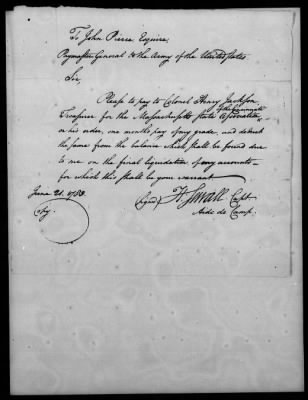 To John Pierce Esquire,
Paymaster General to the Army of the United States
Sir,
Please to pay to Colonel Henry Jackson
of the Cincinnati
Treasurer for the Massachusetts State Association,
or his order, one months pay of my grade, and deduct
the same from the balance which shall be found due
to me on the final liquidation of my accounts—
for which this shall be your warrant
June 21. 1783.
(Signed) H Sewall Capt
Copy.
Aide de Camp.